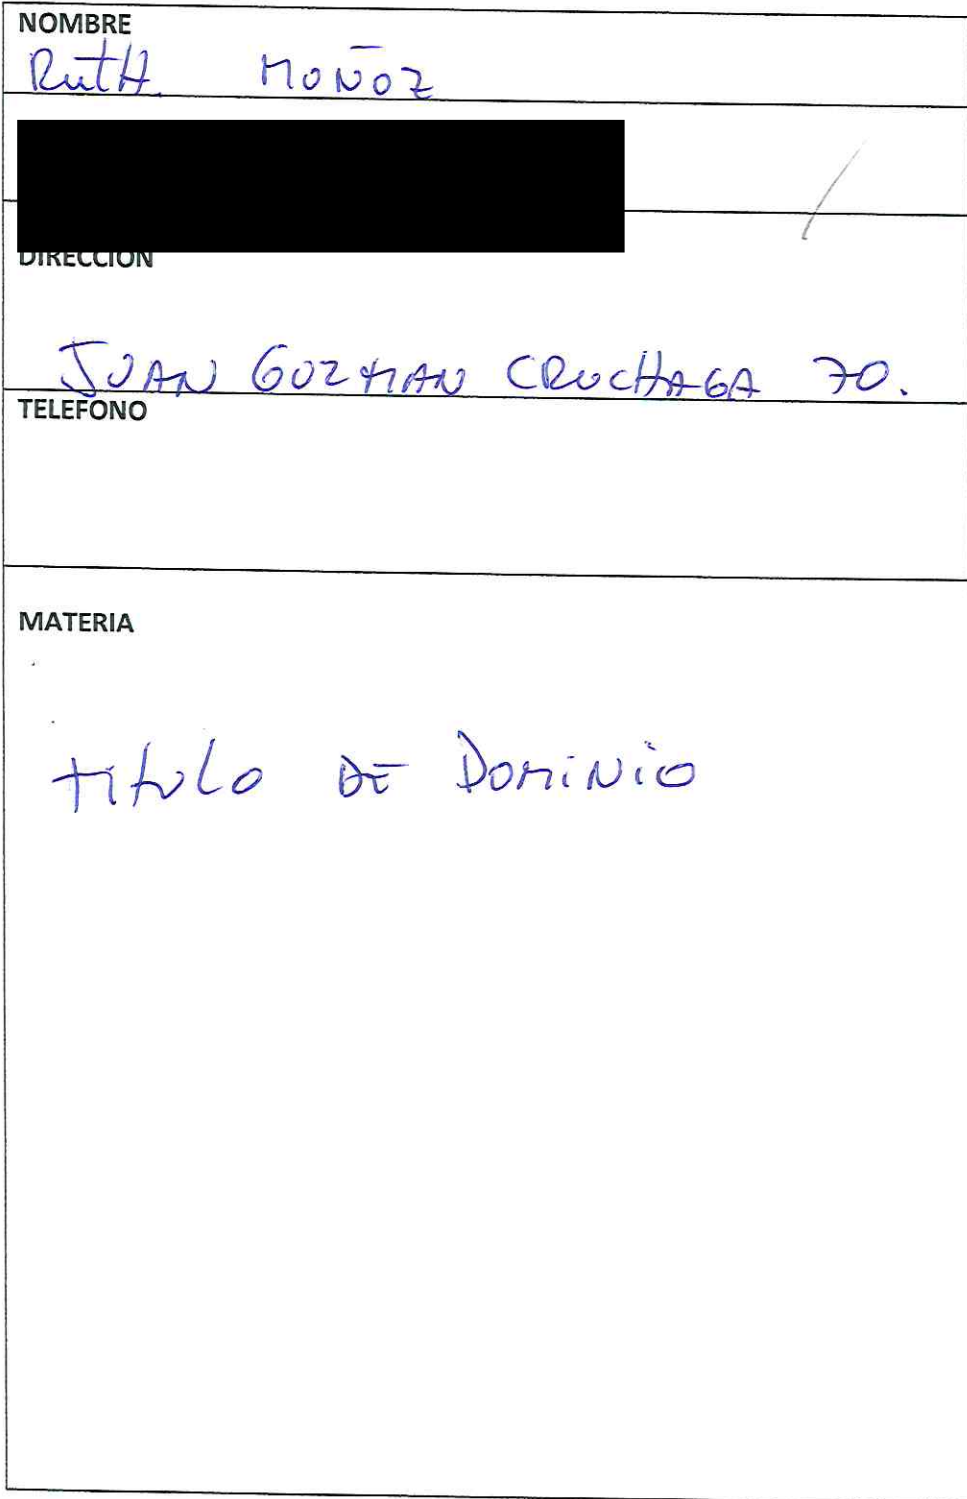 NOMBRE
RutH MUÑOZ
DIRECCION
JUAN GUZMAN CRUCHAGA 70.
TELEFONO
MATERIA
titulo DE DOMiNiO